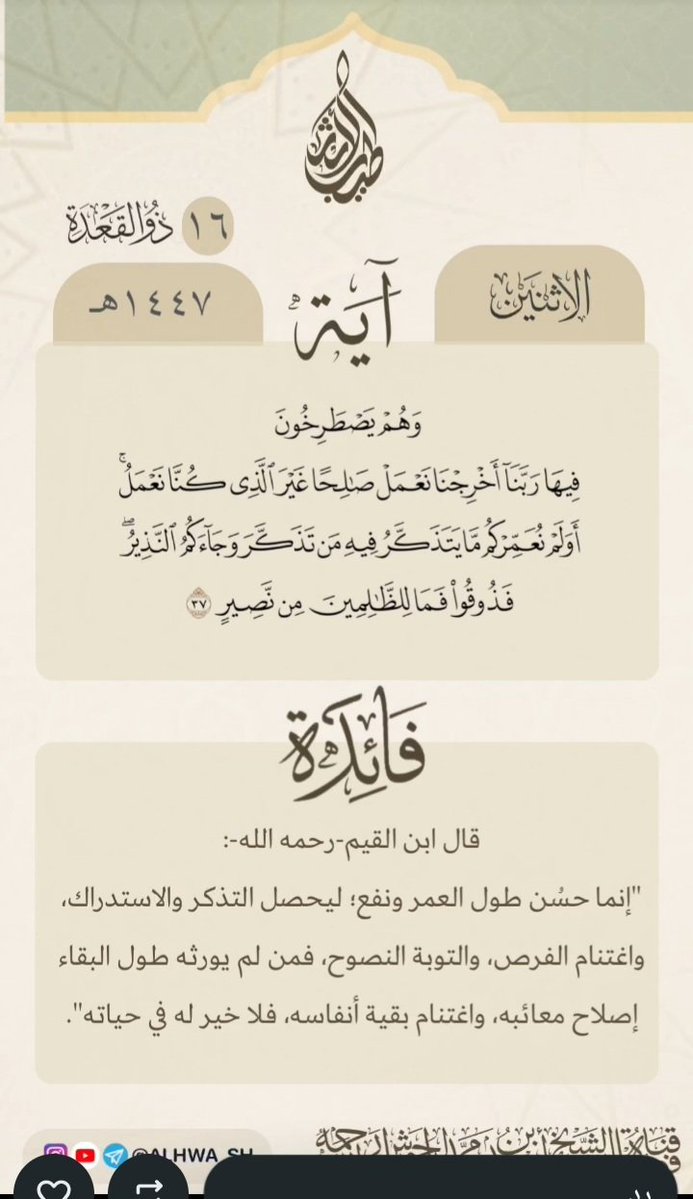 طيب الأثر
١٦ ذُو القَعْدَة
الاثنين
١٤٤٧هـ
آية
وَهُمْ يَصْطَرِخُونَ
فِيهَا رَبَّنَآ أَخْرِجْنَا نَعْمَلْ صَٰلِحًا غَيْرَ ٱلَّذِى كُنَّا نَعْمَلُ ۚ
أَوَلَمْ نُعَمِّرْكُم مَّا يَتَذَكَّرُ فِيهِ مَن تَذَكَّرَ وَجَآءَكُمُ ٱلنَّذِيرُ ۖ
فَذُوقُوا۟ فَمَا لِلظَّٰلِمِينَ مِن نَّصِيرٍ ٣٧
فَائِدَة
قال ابن القيم-رحمه الله-:
"إنما حسُن طول العمر ونفع؛ ليحصل التذكر والاستدراك،
واغتنام الفرص، والتوبة النصوح، فمن لم يورثه طول البقاء
إصلاح معائبه، واغتنام بقية أنفاسه، فلا خير له في حياته".
@ALHWA_SH
قناة الشيخ